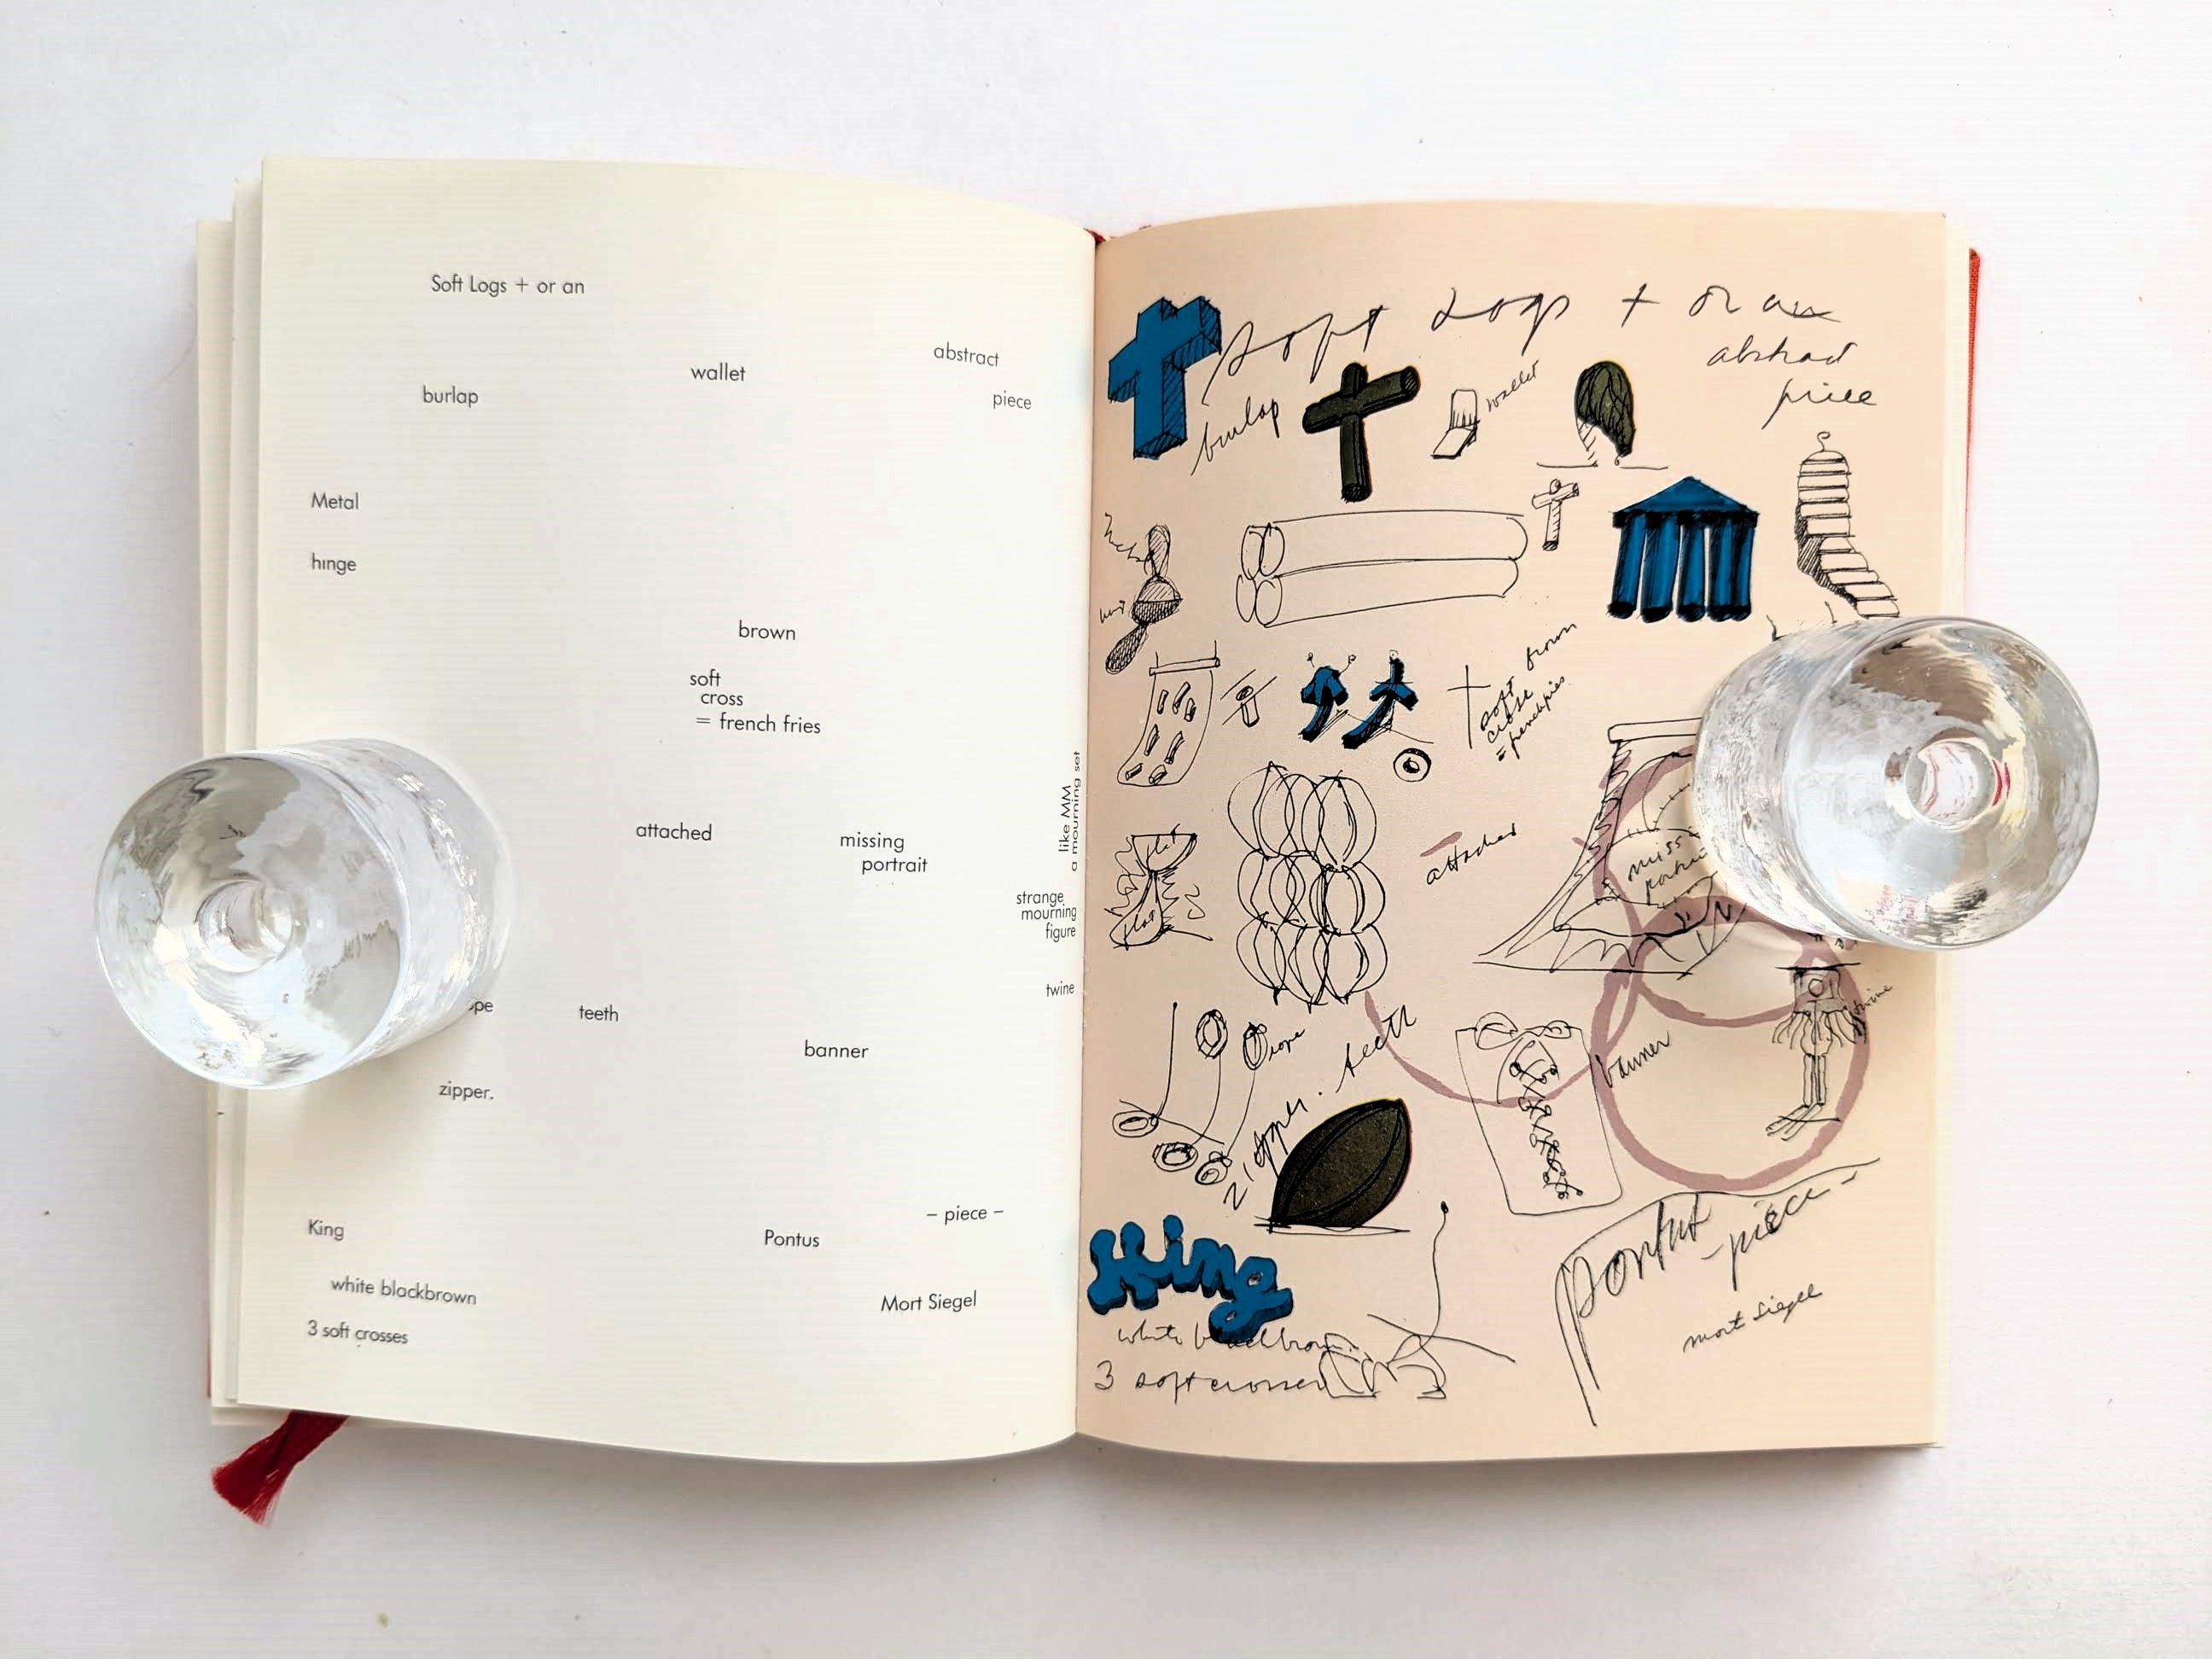 Soft Logs + or an
abstract
wallet
burlap
piece
Metal
hinge
brown
soft
cross
= french fries
like MM
a mourning set
attached
missing
portrait
strange
mourning
figure
twine
teeth
banner
zipper.
King
– piece –
Pontus
white blackbrown
Mort Siegel
3 soft crosses
Soft Logs + or an
abstract
piece
burlap
wallet
brown
soft
cross
attached
rope
teeth
zipper.
banner
twine
King
white blackbrown
3 soft crosses
Pontus
– piece –
mort siegel